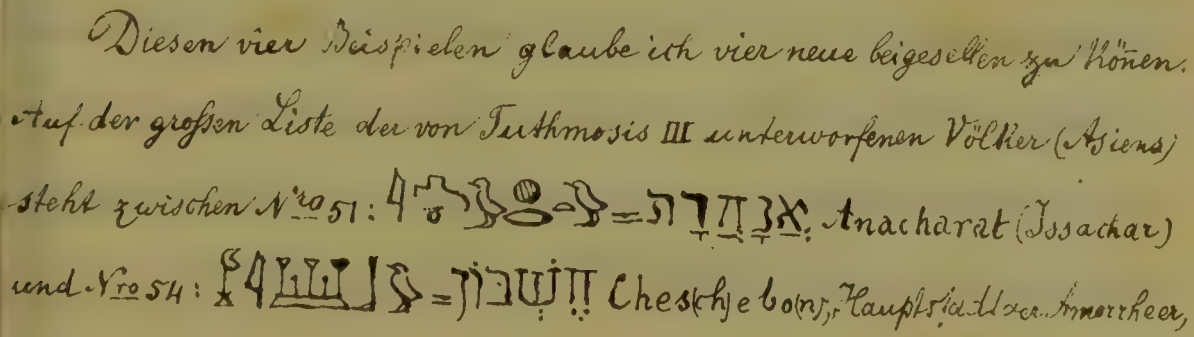 Diesen vier Beispielen glaube ich vier neue beigesellen zu kön̄en.
Auf der großen Liste der von Tuthmosis III unterworfenen Völker (Asiens)
steht zwischen Nro 51: = אֲנָחֲרָת, Anacharat (Issachar)
und Nro 54: = חֶשְׁבּוֹן Ches(ch)ebo(n), Hauptstadt der Amorrheer,